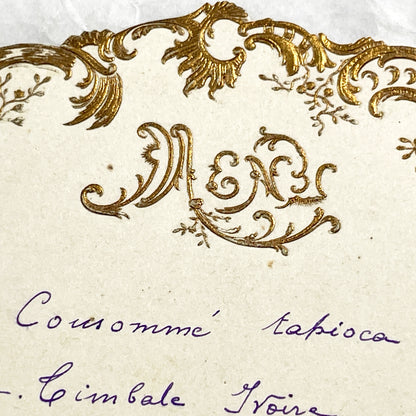 Menu
Consommé tapioca
Timbale Ivoire